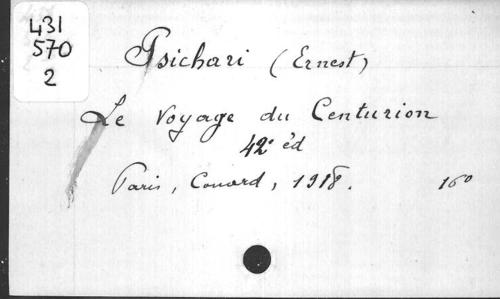 431
570
2
Psichari (Ernest)
Le Voyage du Centurion
42e éd
Paris, Conard, 1918. 16º